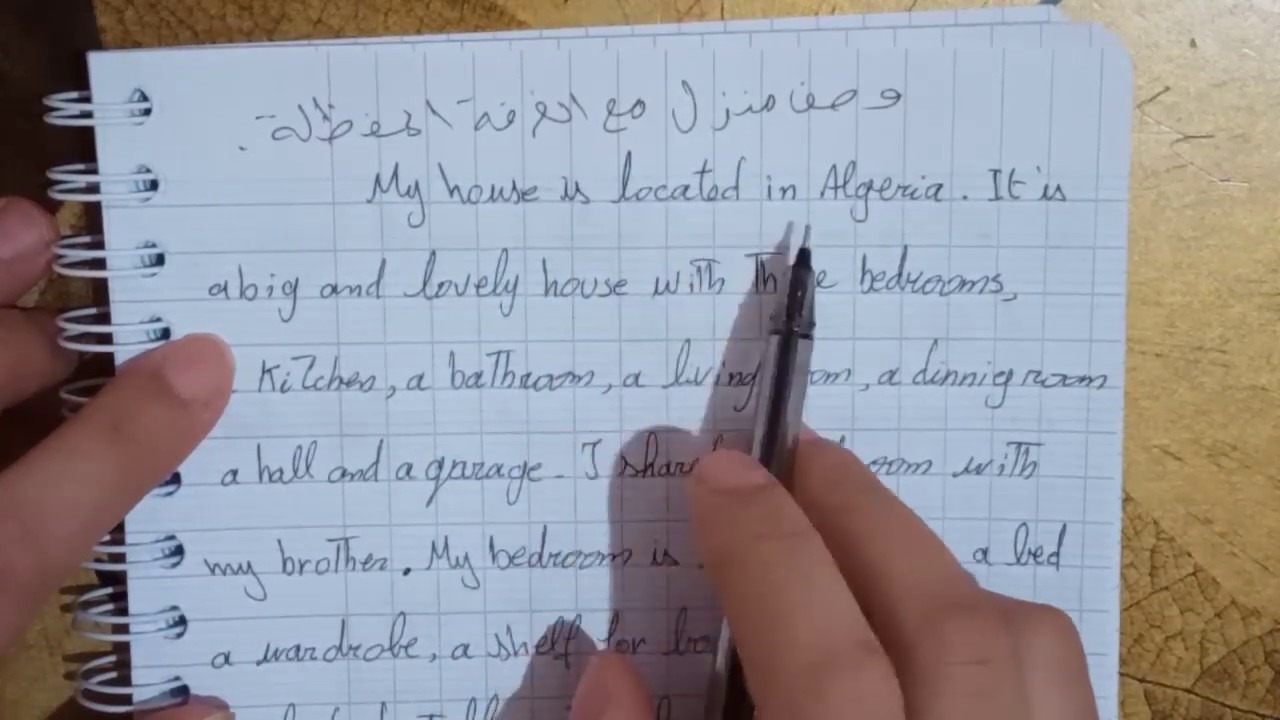 وصف منزل مع الغرفة المفضلة.
My house is located in Algeria. It is
a big and lovely house with bedrooms,
Kitchen, a bathroom, a living , a dinnig room
a hall and a garage. I with
my brother. My bedroom is a bed
a wardrobe, a shelf for